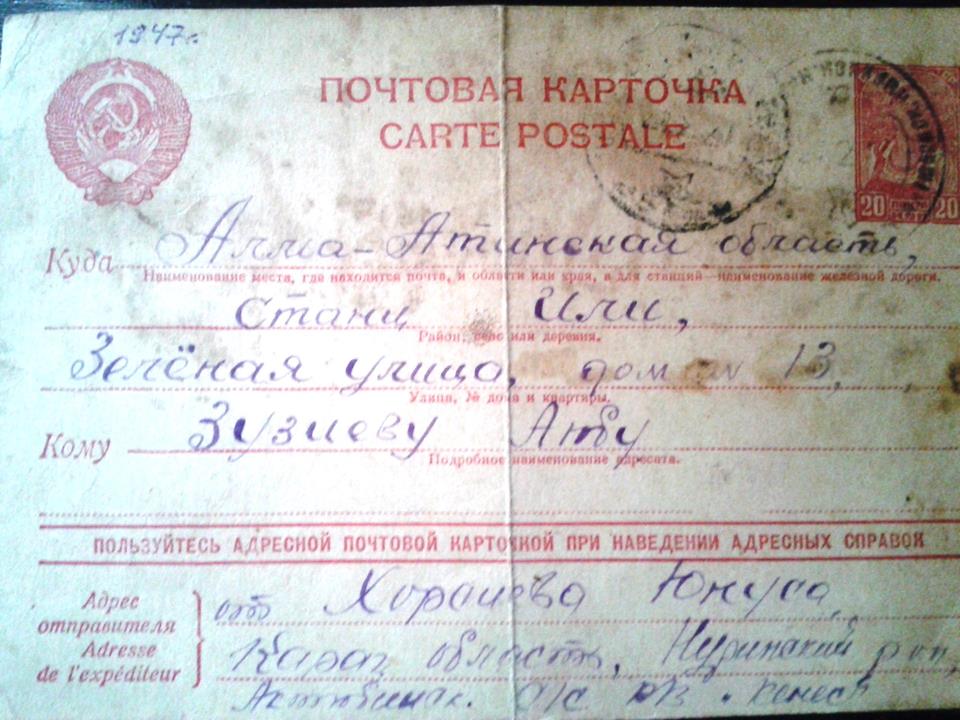 1947г.
ПОЧТОВАЯ КАРТОЧКА
CARTE POSTALE
20 20
Куда Алма-Атинская область,
Наименование места, где находится почта, и области или края, а для станций—наименование железной дороги.
Станц Или,
Район, село или деревня.
Зелёная улица, дом № 13,
Улица, № дома и квартиры.
Кому Зузиеву Аюбу
Подробное наименование адресата.
ПОЛЬЗУЙТЕСЬ АДРЕСНОЙ ПОЧТОВОЙ КАРТОЧКОЙ ПРИ НАВЕДЕНИИ АДРЕСНЫХ СПРАВОК
Адрес отправителя
Adresse de l'expéditeur
от Хорачева Юнуса,
область, Нуринский